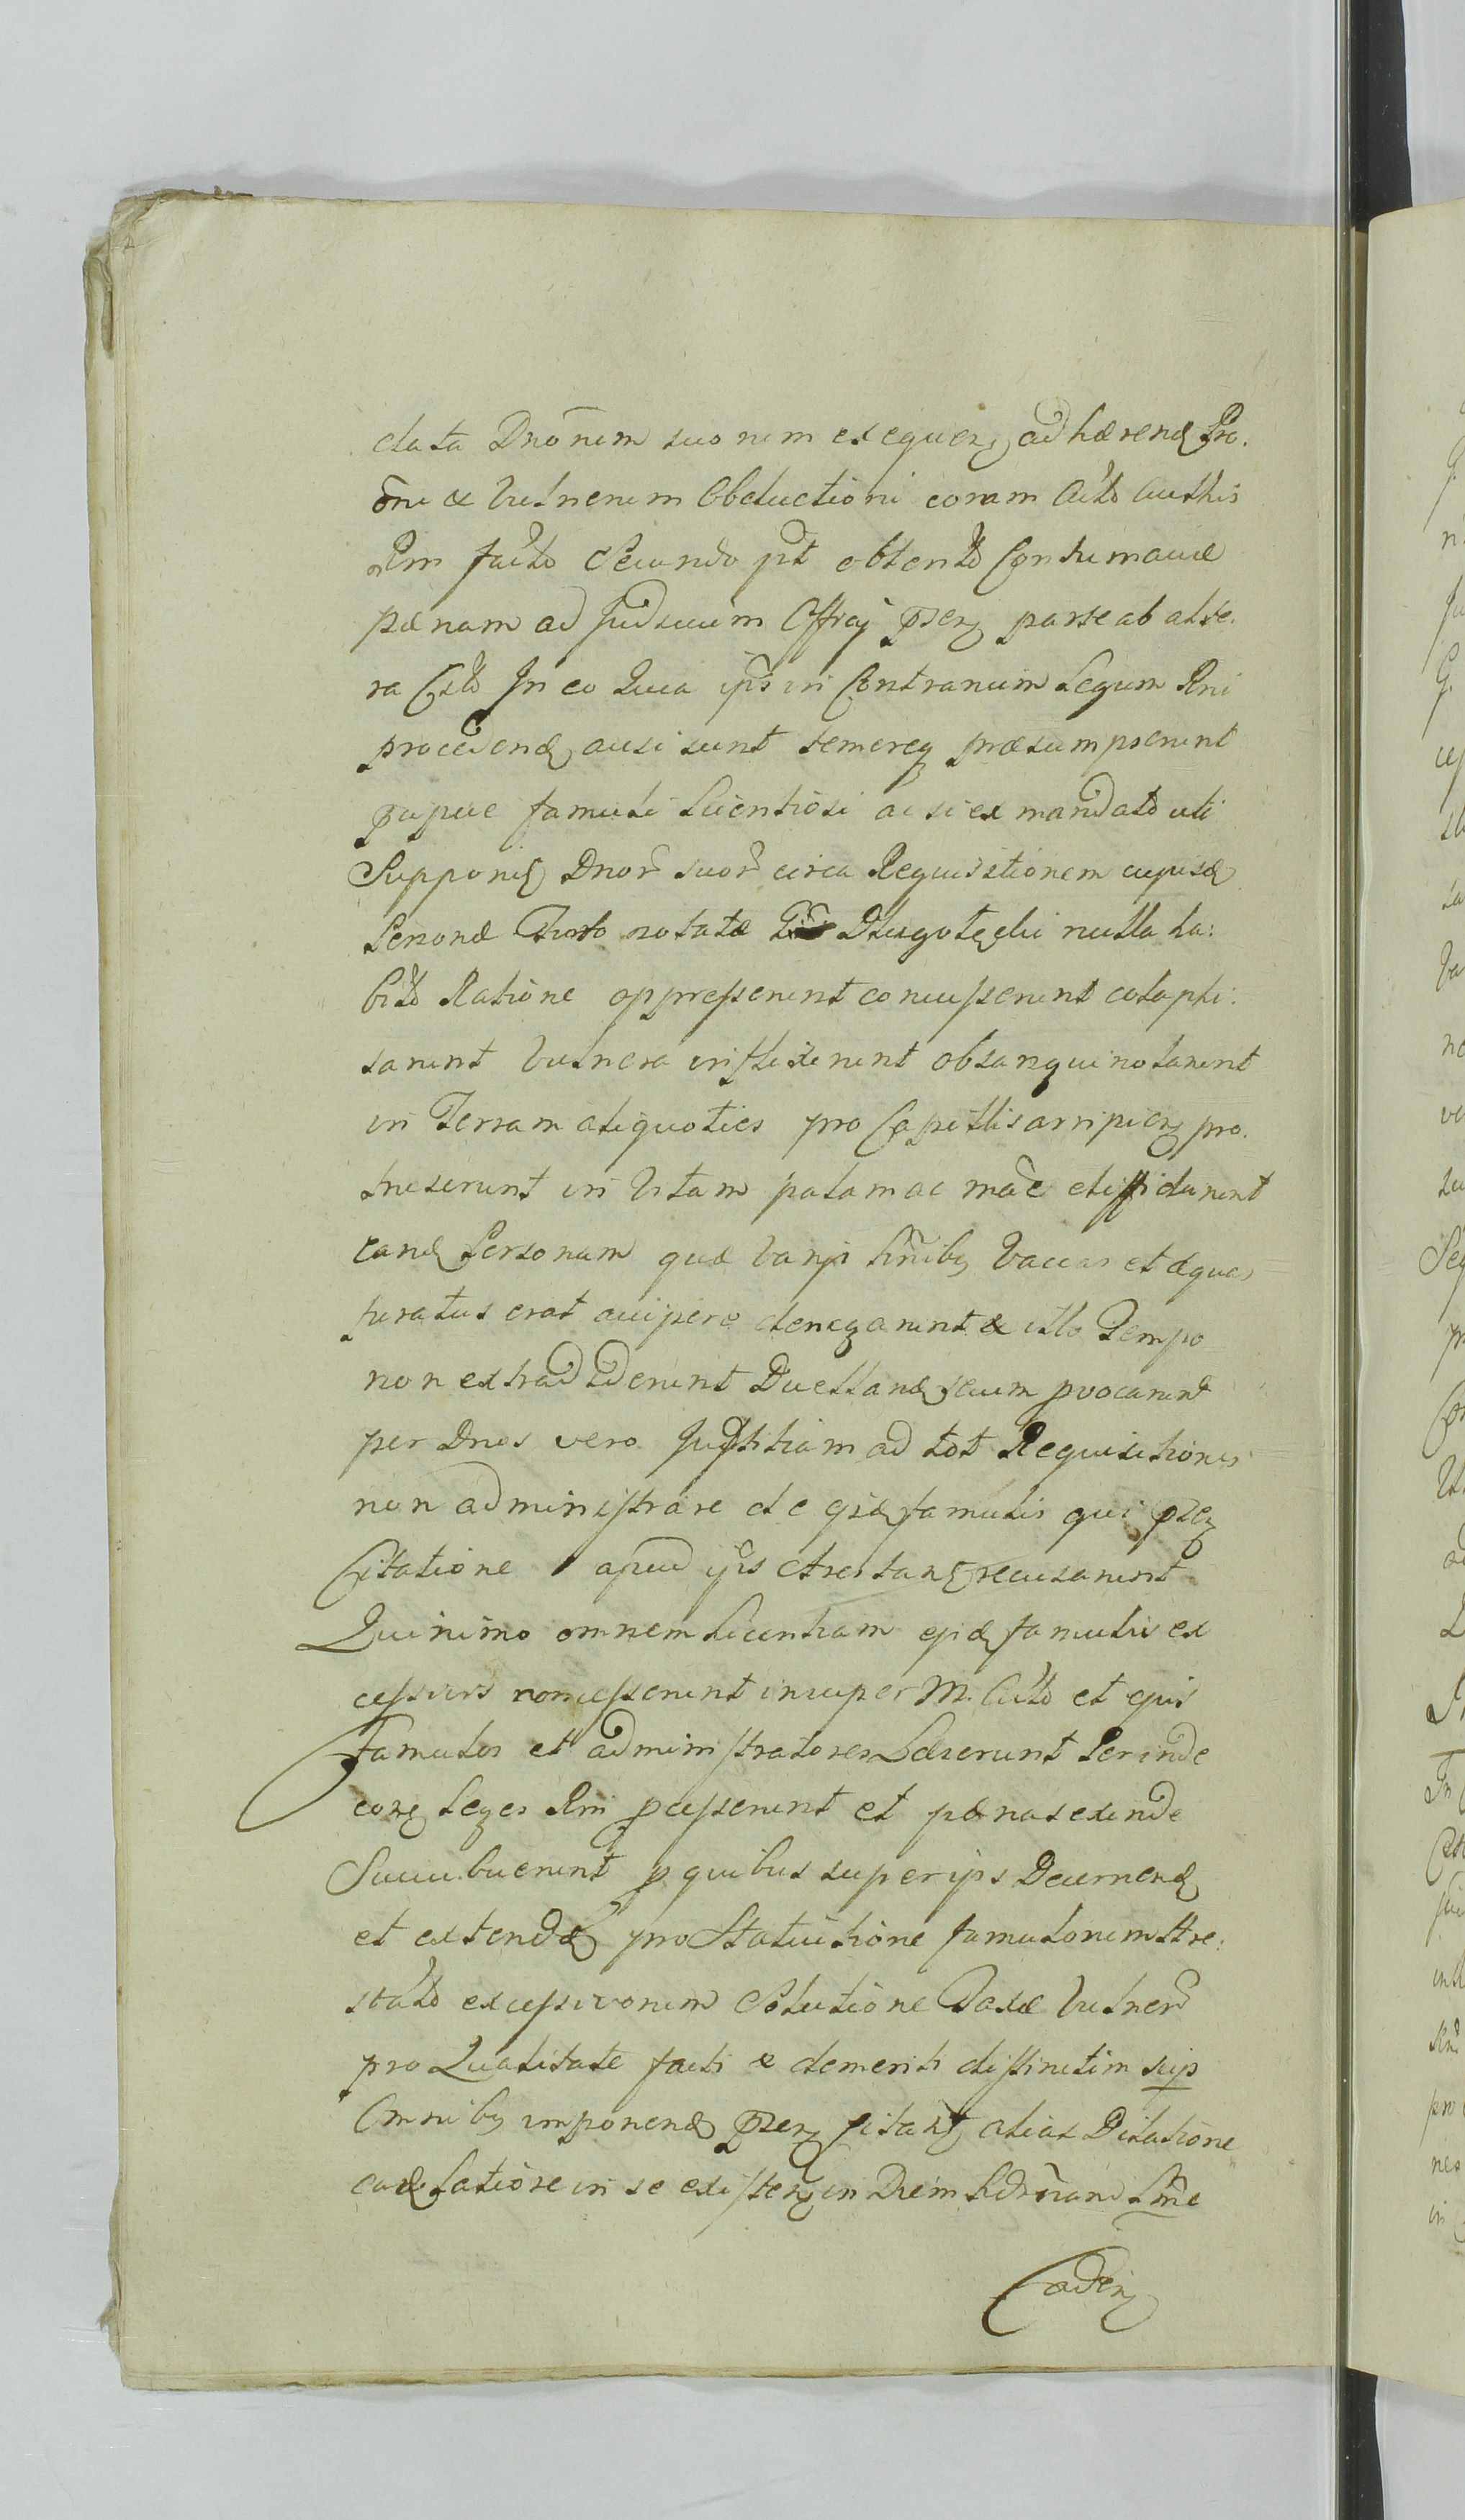 data Dnorum suorum exequen adhærend Pro-
oni & Vulnerum Obductioni coram Actis Authis
Rni facto Secundo pt obtento Contumaciæ
pœnam ad Judicium Offty pnt parte ab alte-
ra Citto In eo Quia ipsi in Contrarium Legum Rni
procedend ausi sunt temereq præsumpserunt
quique famuli licentiosi ac si ex mandato uti
Supponit Dnor suor circa Requisitionem cujusd
Personæ notatæ Długołęcki nulla ha-
bito Ratione oppresserunt concusserunt colaphi-
sarunt Vulnera inflixerunt obsanguinolarunt
in Terram aliquoties pro Capillis arripien pro-
truserunt in Vitam palam ac mãe diffidarunt
eand Personam quæ Varys Vaccas et æquas
furatus erat accipere denegarunt & illo Tempo
non extradiderunt Duelland secum pvocarunt
per Dnos vero Justitiam ad tot Requisitiones
non administrare de ejsd famulis qui pnt
Citatione apud ipsos Arestant recusarunt
Quinimo omnem licentiam ejsd famulis ex
cessivis concesserunt insuper M. Acto et ejus
Famulos et administratores Læserunt Perinde
eong leges Rni pcesserunt et pœnas exinde
Succubuerunt p quibus super ipsis Decernend
et extendend pro Statuitione famulorum Are-
stato excessivorum Solutione Taxæ Vulner
pro Qualitate facti & demeriti distinctim sup
Omnibus imponend pnt citant alias Dilatione
ead Latiore in se existen in Diem Lme
Caden